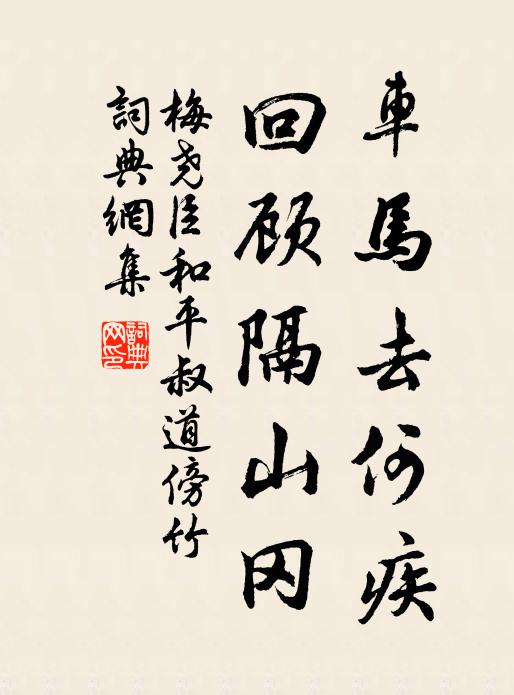 車馬去何疾
回顾隔山冈
梅尧臣和平叔道傍竹
詞典網集
詞典網印